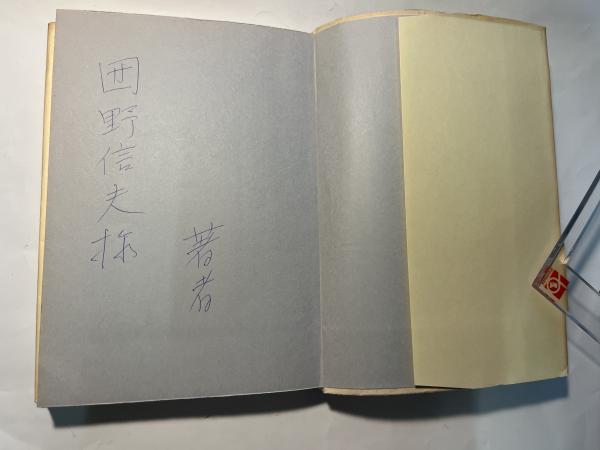 囲野信夫様
著者